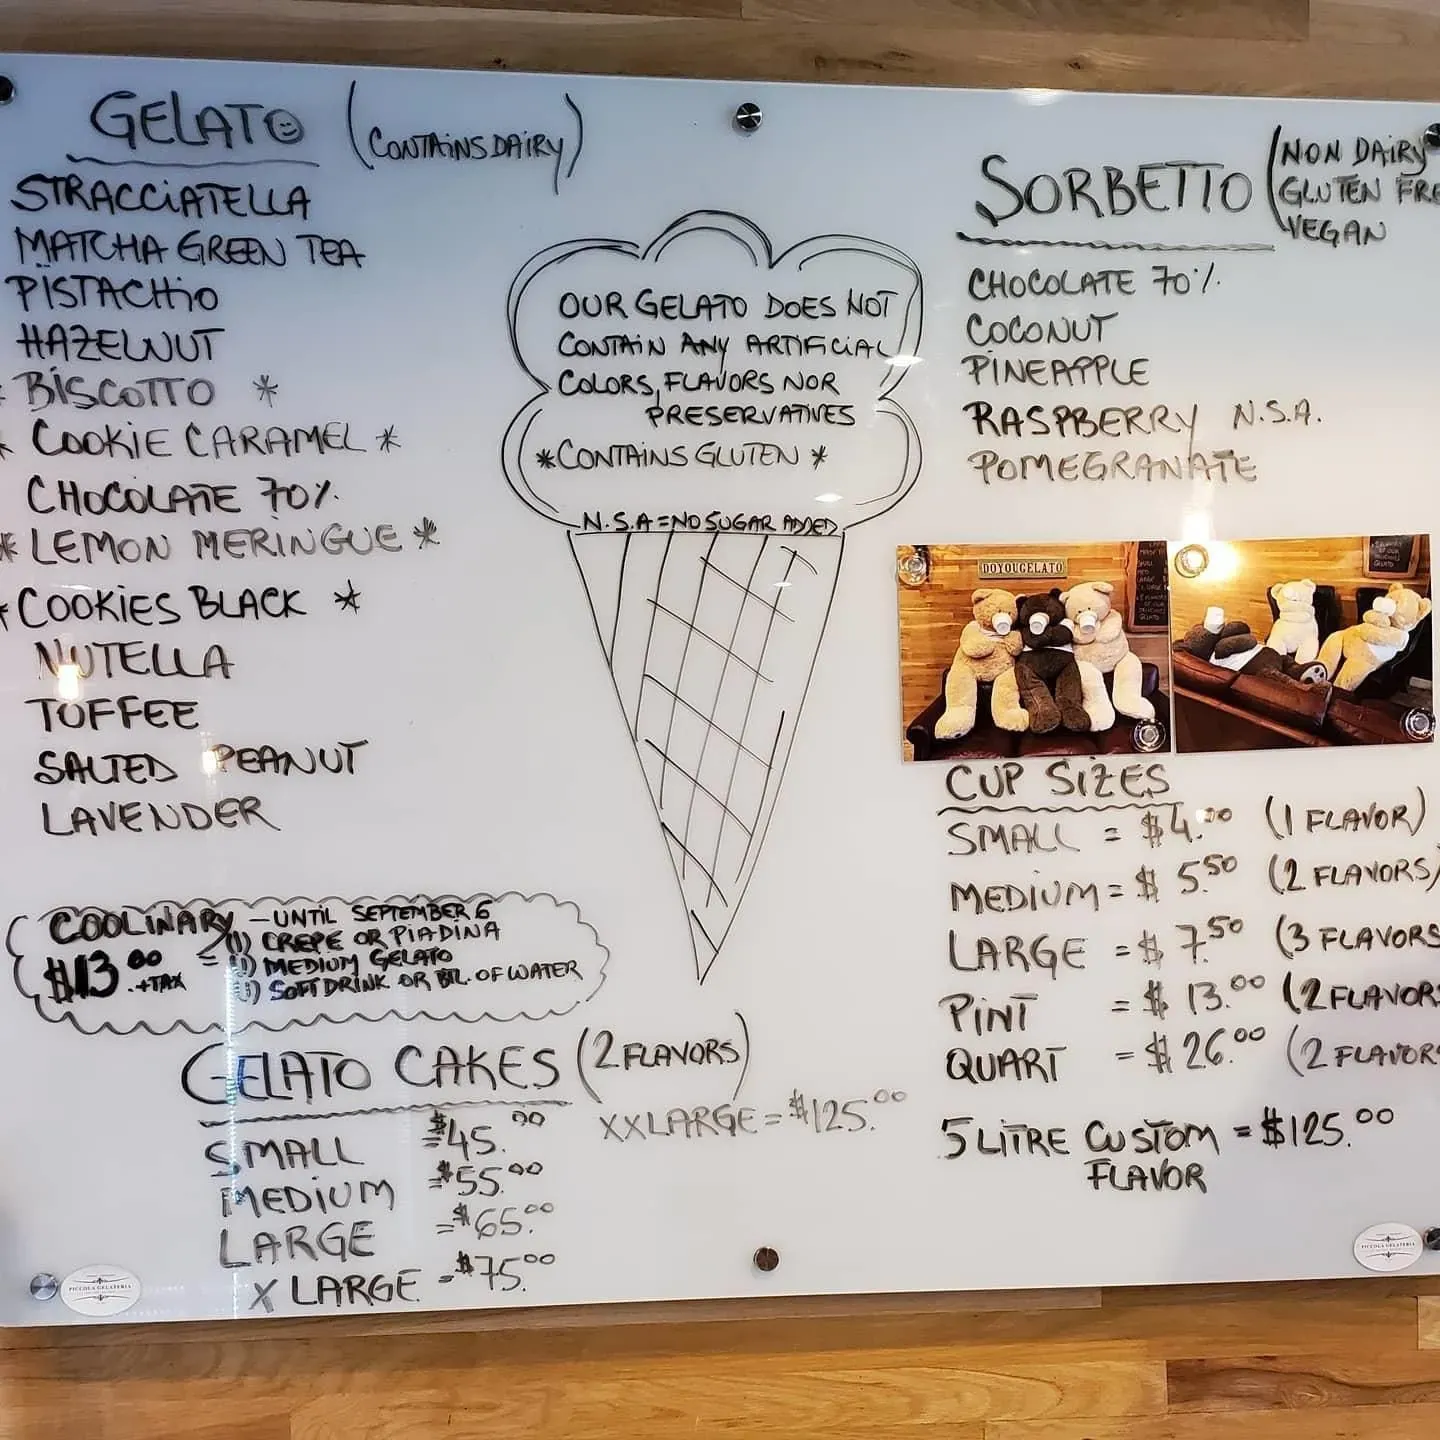 GELATO (CONTAINS DAIRY)
STRACCIATELLA
MATCHA GREEN TEA
PISTACHIO
HAZELNUT
* BISCOTTO *
* COOKIE CARAMEL *
CHOCOLATE 70%
* LEMON MERINGUE *
* COOKIES BLACK *
NUTELLA
TOFFEE
SALTED PEANUT
LAVENDER
OUR GELATO DOES NOT
CONTAIN ANY ARTIFICIAL
COLORS, FLAVORS NOR
PRESERVATIVES
*CONTAINS GLUTEN *
N.S.A = NO SUGAR ADDED
SORBETTO (NON DAIRY
GLUTEN FRE
VEGAN
CHOCOLATE 70%
COCONUT
PINEAPPLE
RASPBERRY N.S.A.
POMEGRANATE
DOYOUGELATO
CUP SIZES
SMALL = $4.00 (1 FLAVOR)
MEDIUM = $5.50 (2 FLAVORS)
LARGE = $7.50 (3 FLAVORS
PINT = $13.00 (2 FLAVORS
QUART = $26.00 (2 FLAVORS
5 LITRE CUSTOM = $125.00
FLAVOR
COOLINARY - UNTIL SEPTEMBER 6
(1) CREPE OR PIADINA
$13.00 +TAX = (1) MEDIUM GELATO
(1) SOFT DRINK OR BTL. OF WATER
GELATO CAKES (2 FLAVORS)
SMALL =$45.00
MEDIUM =$55.00
LARGE =$65.00
X LARGE =$75.00
XXLARGE = $125.00
PICCOLA GELATERIA
PICCOLA GELATERIA